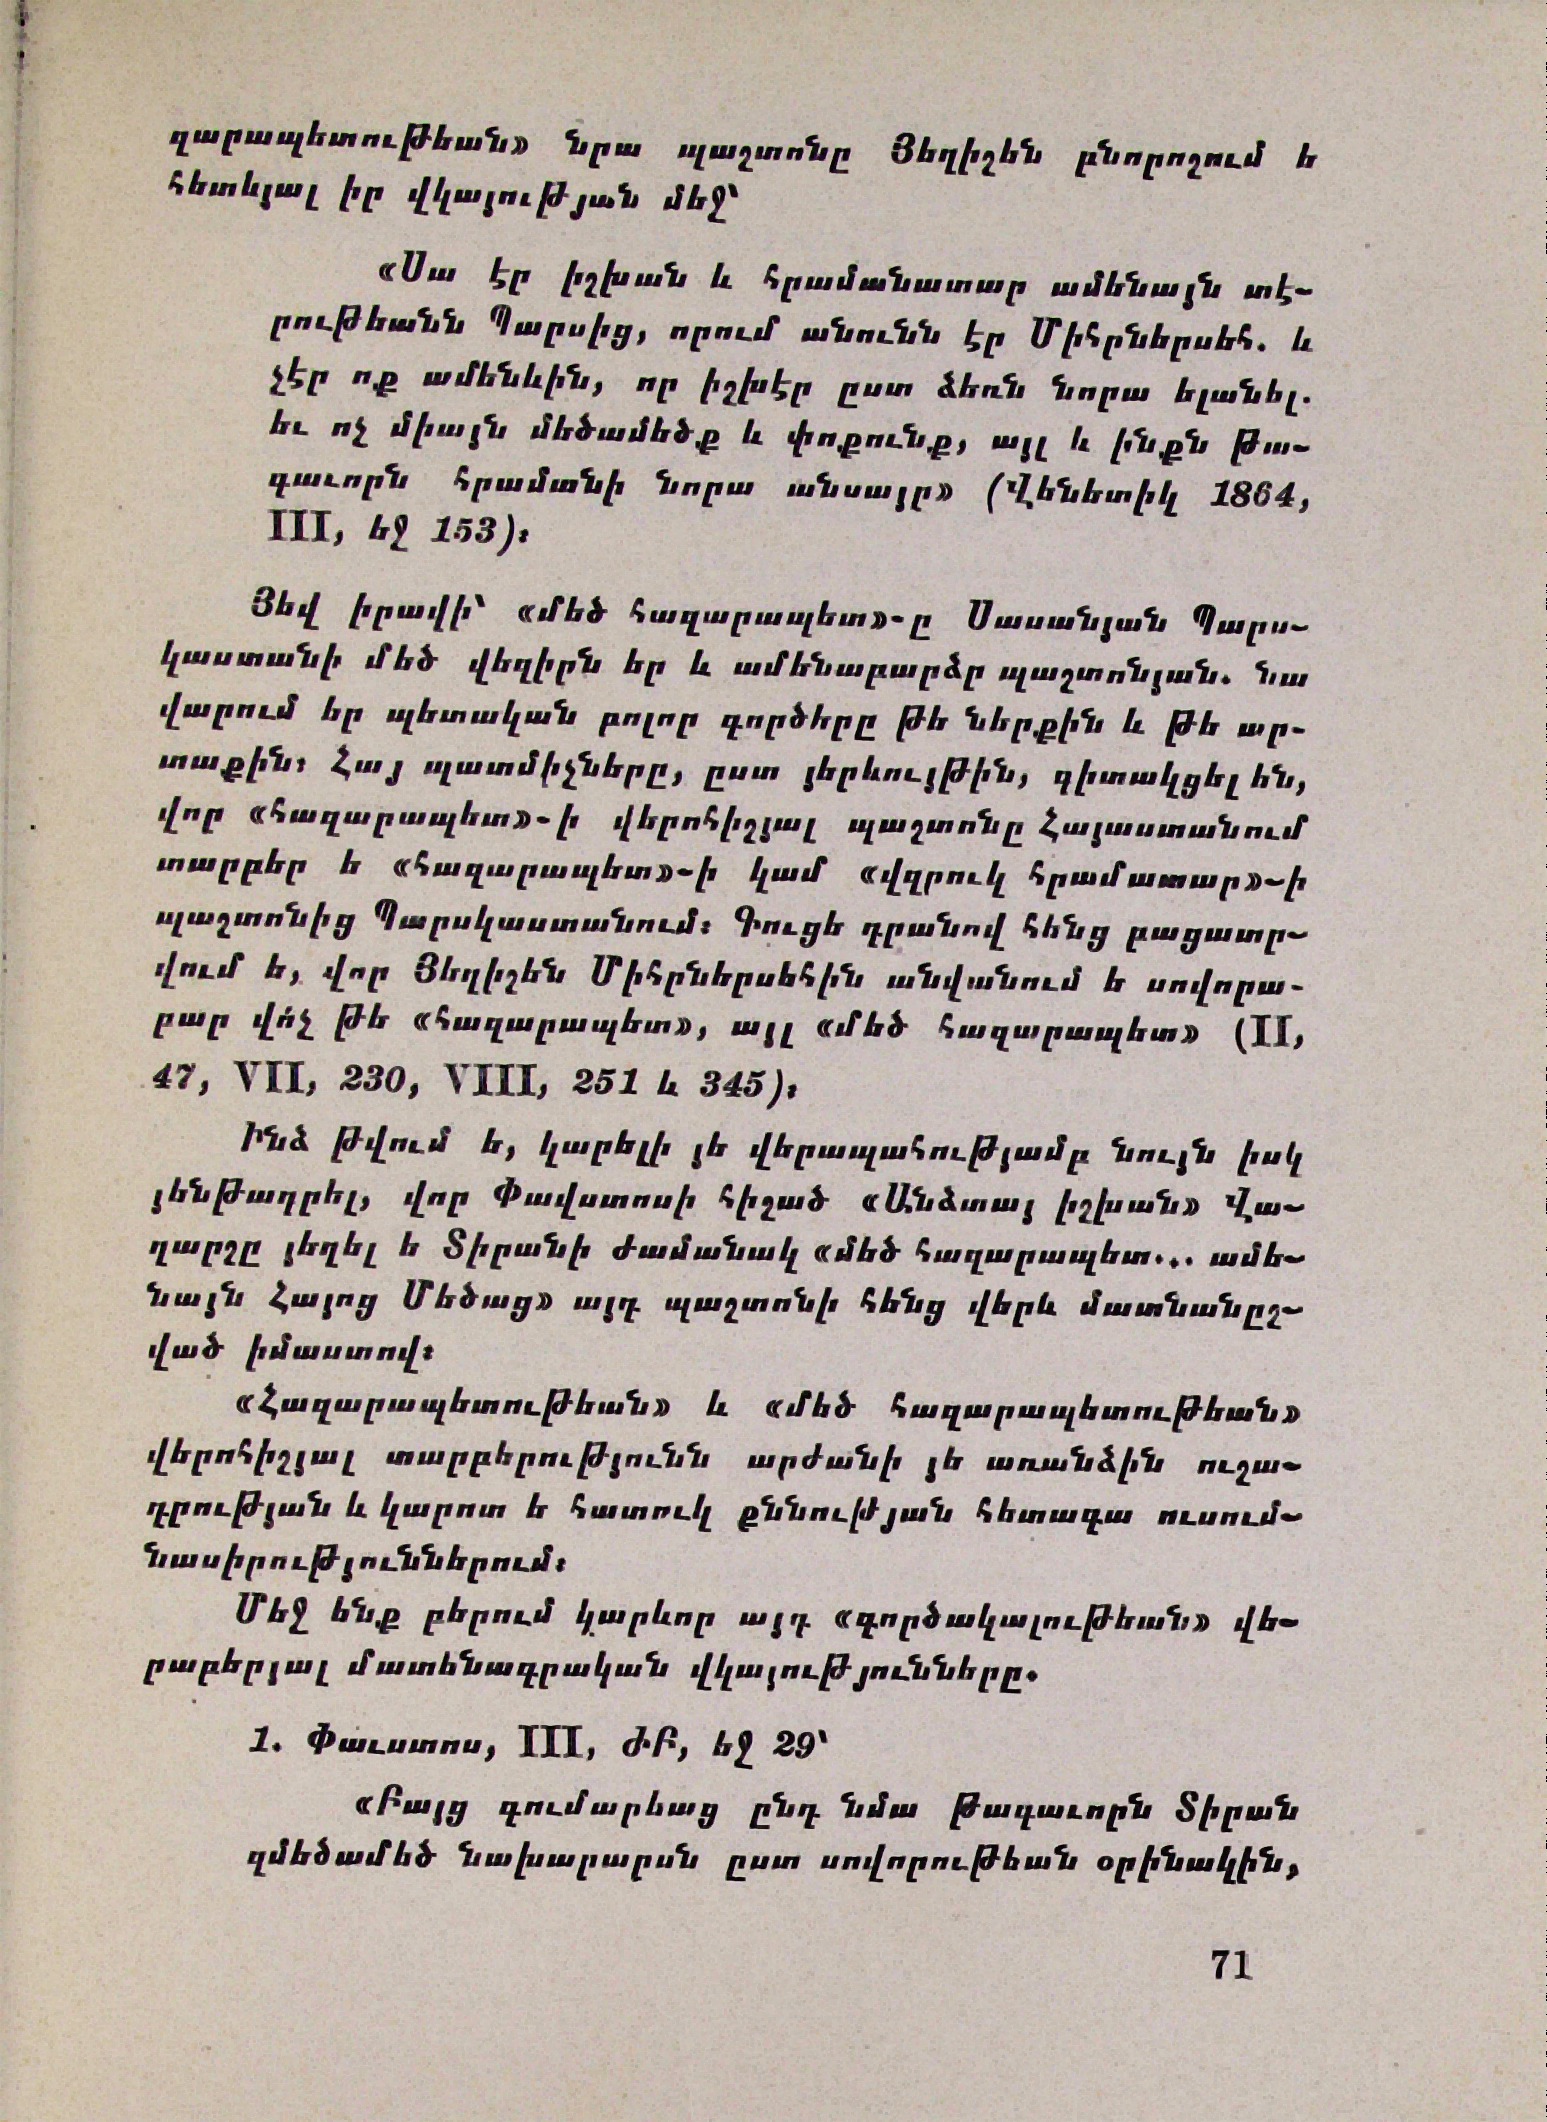 զարապետութեան» նրա պաշտոնը Յեղիշեն բնորոշում ե
հետևյալ իր վկայության մեջ՝
«Սա էր իշխան և հրամանատար ամենայն տէ-
րութեանն Պարսից, որում անունն էր Միհրներսեհ. և
չէր ոք ամենևին, որ իշխէր ըստ ձեռն նորա ելանել.
եւ ոչ միայն մեծամեծք և փոքունք, այլ և ինքն թա-
գաւորն հրամանի նորա անսայր» (Վենետիկ 1864,
III, եջ 153)։
Յեվ իրավի՝ «մեծ հազարապետ»-ը Սասանյան Պարս-
կաստանի մեծ վեզիրն եր և ամենաբարձր պաշտոնյան. նա
վարում եր պետական բոլոր գործերը թե ներքին և թե ար-
տաքին։ Հայ պատմիչները, ըստ յերևույթին, գիտակցել են,
վոր «հազարապետ»-ի վերոհիշյալ պաշտոնը Հայաստանում
տարբեր ե «հազարապետ»-ի կամ «վզրուկ հրամատար»-ի
պաշտոնից Պարսկաստանում։ Գուցե դրանով հենց բացատր-
վում ե, վոր Յեղիշեն Միհրներսեհին անվանում ե սովորա-
բար վո՛չ թե «հազարապետ», այլ «մեծ հազարապետ» (II,
47, VII, 230, VIII, 251 և 345)։
Ինձ թվում ե, կարելի յե վերապահությամբ նույն իսկ
յենթադրել, վոր Փավստոսի հիշած «Անձտայ իշխան» Վա-
ղարշը յեղել ե Տիրանի ժամանակ «մեծ հազարապետ... ամե-
նայն Հայոց Մեծաց» այդ պաշտոնի հենց վերև մատնանըշ-
ված իմաստով։
«Հազարապետութեան» և «մեծ հազարապետութեան»
վերոհիշյալ տարբերությունն արժանի յե առանձին ուշա-
դրության և կարոտ ե հատուկ քննության հետագա ուսում-
նասիրություններում։
Մեջ ենք բերում կարևոր այդ «գործակալութեան» վե-
րաբերյալ մատենագրական վկայությունները.
1. Փաւստոս, III, ԺԲ, եջ 29՝
«Բայց գումարեաց ընդ նմա թագաւորն Տիրան
զմեծամեծ նախարարսն ըստ սովորութեան օրինակին,
71